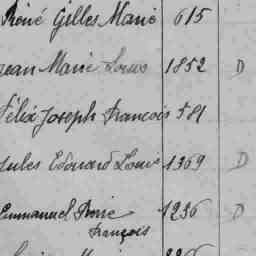 René Gilles Marie 615
Jean Marie Louis 1852 D
Félix Joseph François 581
Jules Edouard Louis 1369 D
Emmanuel Pierre 1236 D
François